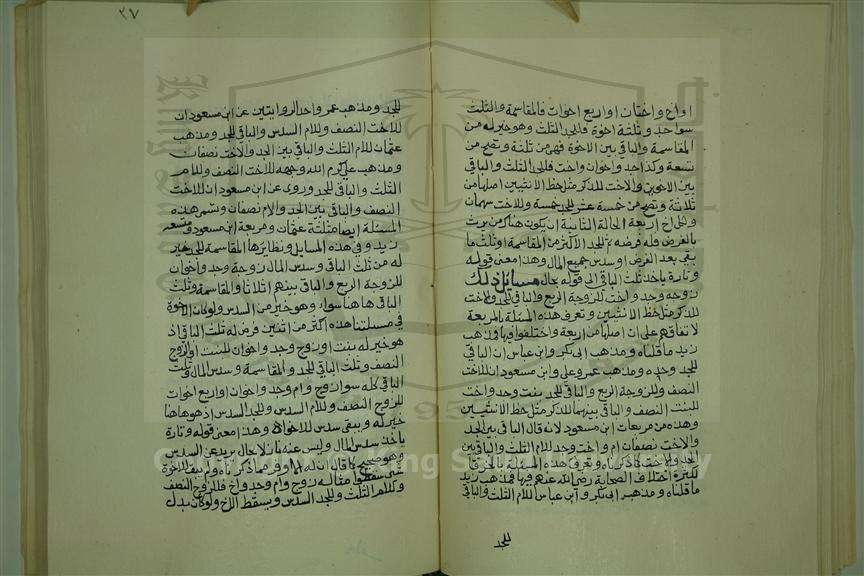 اواخ واختان اواربع اخوات فالمقاسمة والثلث
سوا جد وثلثة اخوة فللجد الثلث وهو خير له من
المقاسمة والباقي بين الاخوة فهي من ثلثة وتصح من
تسعة وكذا جد واخوان واخت فللجد الثلث والباقي
بين الاخوين والاخت للذكر مثل حظ الانثيين اصلها من
ثلاثة وتصح من خمسة عشر للجد خمسة وللاخت سهمان
ولكل اخ اربعة الحالة الثانية ان يكون هناك من يرث
بالفرض فله فرضه ثم للجد الاكثر من المقاسمة او ثلث ما
بقي بعد الفرض او سدس جميع المال وهذا معنى قوله
وتارة ياخذ ثلث الباقي الى قوله بحال مسايل ذلك
زوجة وجد واخت للزوجة الربع والباقي للجد والاخت
للذكر مثل حظ الانثيين وتعرف هذه المسئلة بالمربعة
لاتفاقهم على ان اصلها من اربعة واختلفوا فيها فمذهب
زيد ما قلناه ومذهب ابي بكر وابن عباس ان الباقي
للجد وحده ومذهب عمر وعلي وابن مسعود ان للاخت
النصف وللزوجة الربع والباقي للجد بنت وجد واخت
للبنت النصف والباقي بينهما للذكر مثل حظ الانثيين
وهذه من مربعات ابن مسعود لانه قال الباقي بين الجد
والاخت نصفان ام واخت وجد للام الثلث والباقي بين
الجد والاخت كما ذكرناه وتعرف هذه المسئلة بالخرقا
لكثرة اختلاف الصحابة رضي الله عنهم فيها فمذهب زيد
ما قلناه ومذهب ابي بكر وابن عباس للام الثلث والباقي
للجد
٣٧
للجد ومذهب عمر واحد الروايتين عن ابن مسعود ان
للاخت النصف وللام السدس والباقي للجد ومذهب
عثمان للام الثلث والباقي بين الجد والاخت نصفان
ومذهب علي كرم الله وجهه للاخت النصف وللام
الثلث والباقي للجد وروى عن ابن مسعود ان للاخت
النصف والباقي بين الجد والام نصفان وتسمى هذه
المسئلة ايضا مثلثة عثمان ومربعة ابن مسعود ومتسعة
زيد وفي هذه المسايل ونظايرها المقاسمة للجد خير
له من ثلث الباقي وسدس المال زوجة وجد واخوان
للزوجة الربع والباقي بينهم اثلاثا والمقاسمة وثلث
الباقي هاهنا سوا وهو خير من السدس ولو كان الاخوة
في مسئلتنا هذه اكثر من اثنين فرض له ثلث الباقي اذ
هو خير له بنت او زوج وجد واخوان للبنت او الزوج
النصف وثلث الباقي للجد والمقاسمة وسدس المال وثلث
الباقي كله سوا زوج وام وجد واخوان او اربع اخوات
للزوج النصف وللام السدس وللجد السدس اذ هو هاهنا
خير له ويبقى سدس للاخوة وهذا معنى قوله وتارة
ياخذ سدس المال وليس عنه نازلا بحال يريد عن السدس
وهو صحيح كما قال
شي سقطوا مثاله زوج وام وجد واخ فللزوج النصف
وللام الثلث وللجد السدس ويسقط الاخ ولو كان بدل